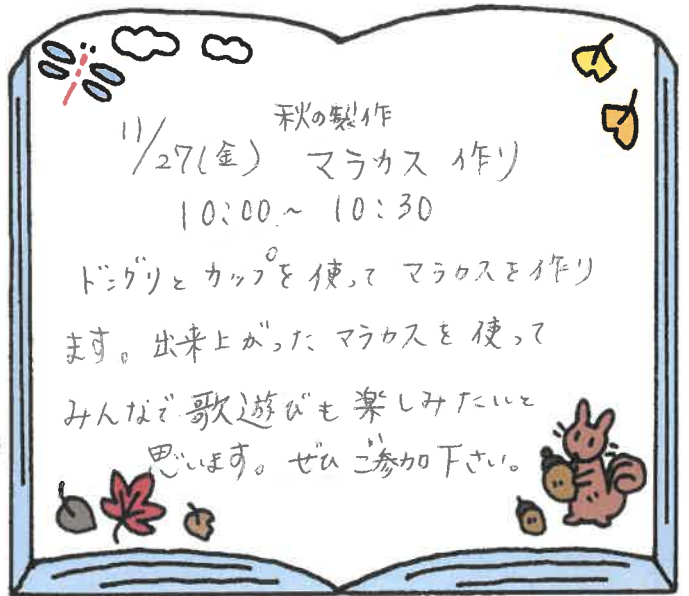 秋の製作
11/27(金) マラカス作り
10:00~10:30
ドングリとカップを使ってマラカスを作り
ます。出来上がったマラカスを使って
みんなで歌遊びも楽しみたいと
思います。ぜひご参加下さい。